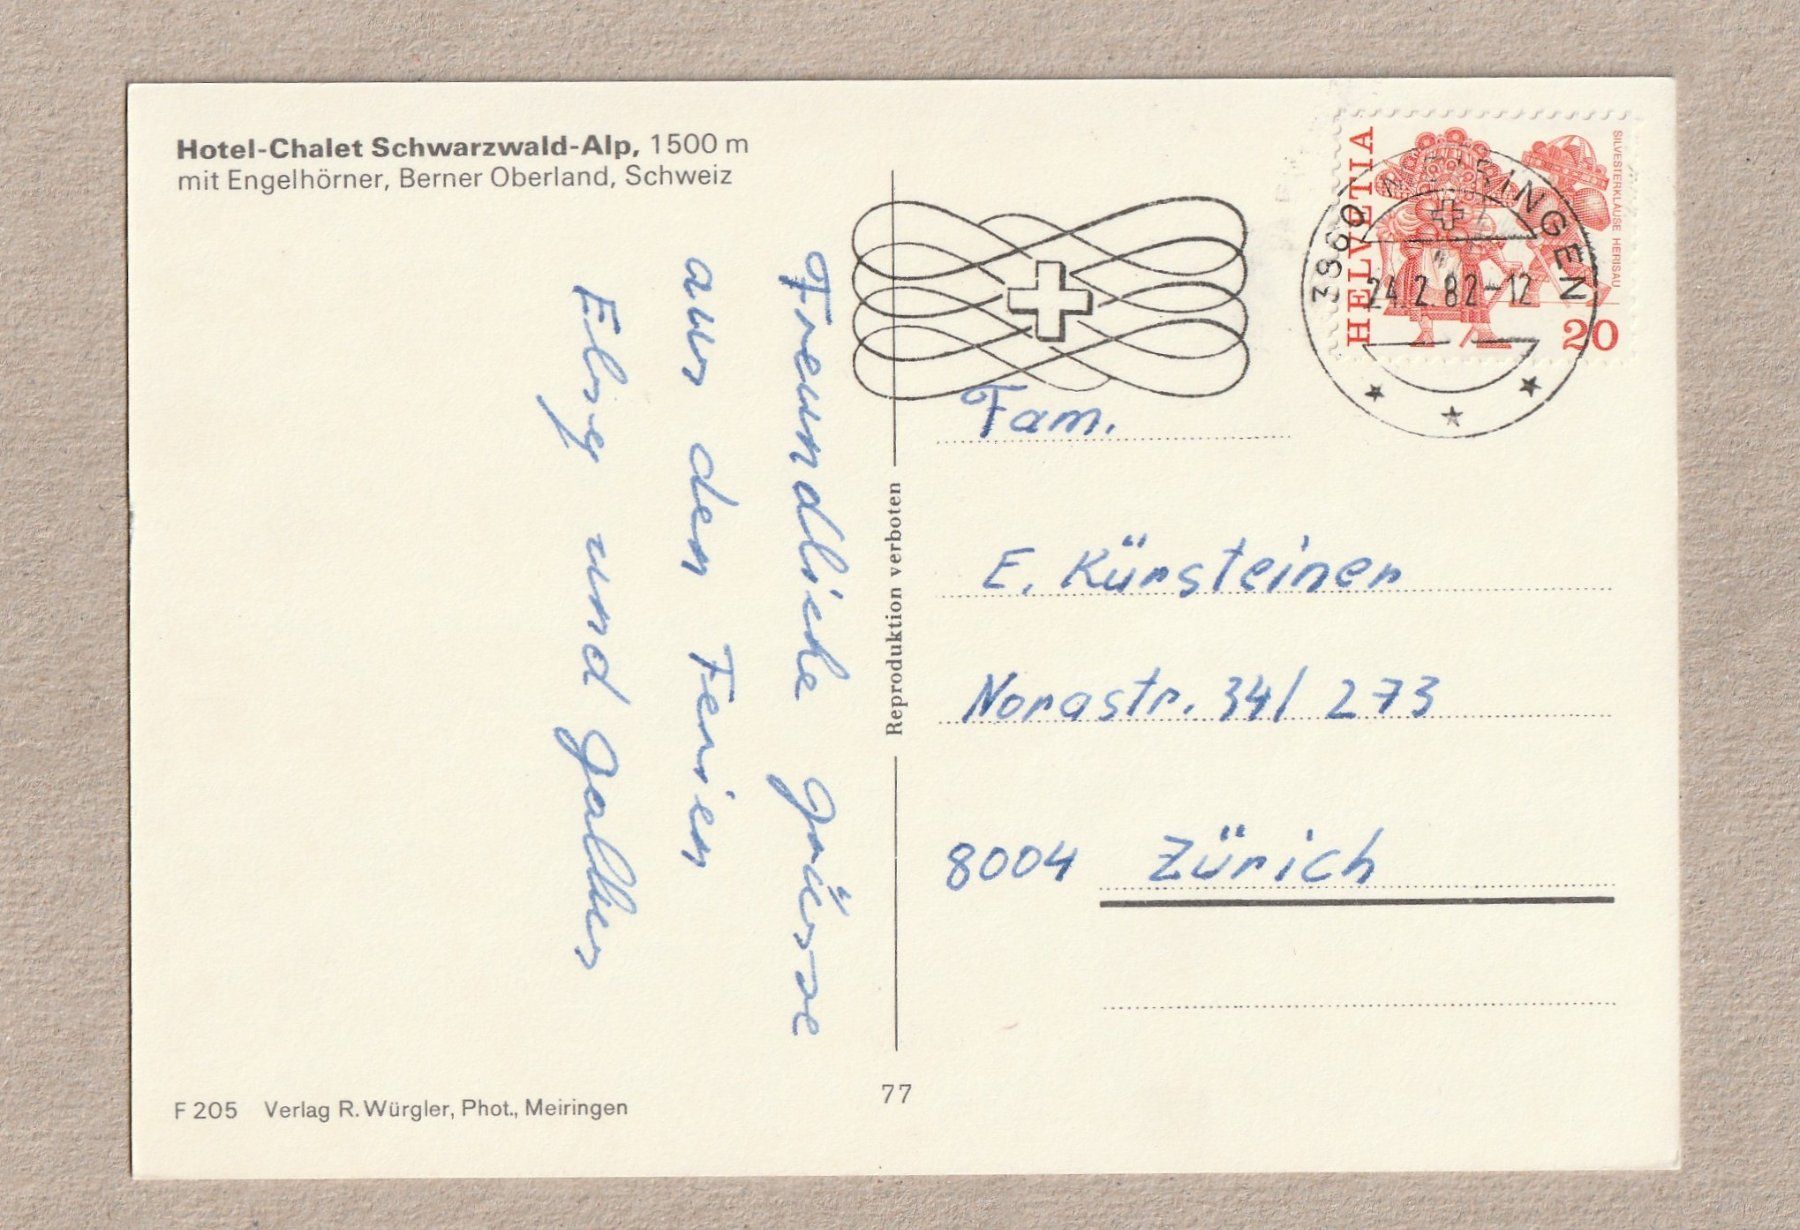 Hotel-Chalet Schwarzwald-Alp, 1500 m
mit Engelhörner, Berner Oberland, Schweiz
Freundliche grüsse
aus den Ferien
und
F 205 Verlag R. Würgler, Phot., Meiringen
Reproduktion verboten
77
HELVETIA
SILVESTERKLÄUSE HERISAU
20
3860 MEIRINGEN
24.2.82-12
Fam.
E. Kürsteiner
Norastr. 34/ 273
8004 Zürich